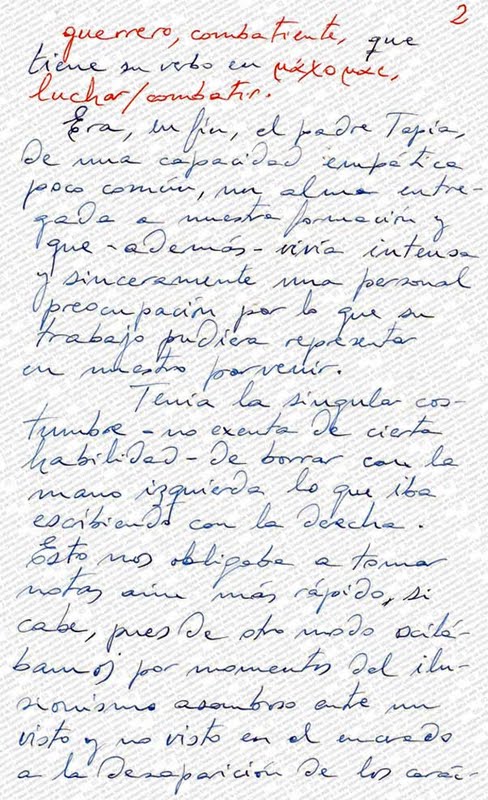 2
guerrero, combatiente, que
tiene su verbo en μάχομαι,
luchar/combatir.
Era, en fin, el padre Tapia,
de una capacidad empática
poco común, un alma entre-
gada a nuestra formación y
que - además - vivía intensa
y sinceramente una personal
preocupación por lo que su
trabajo pudiera representar
en nuestro porvenir.
Tenía la singular cos-
tumbre - no exenta de cierta
habilidad - de borrar con la
mano izquierda lo que iba
escibiendo con la derecha.
Esto nos obligaba a tomar
notas aún más rápido, si
cabe, pues de otro modo oscilá-
bamos por momentos del ilu-
sionismo asombroso ente un
visto y no visto en el encerado
a la desaparición de los carác-